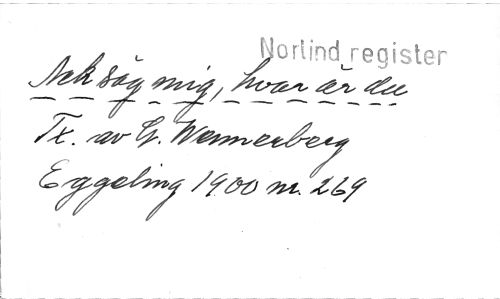 Norlind register
Ack säg mig, hvar är du
Tx. av G. Wennerberg
Eggeling 1900 nr. 269